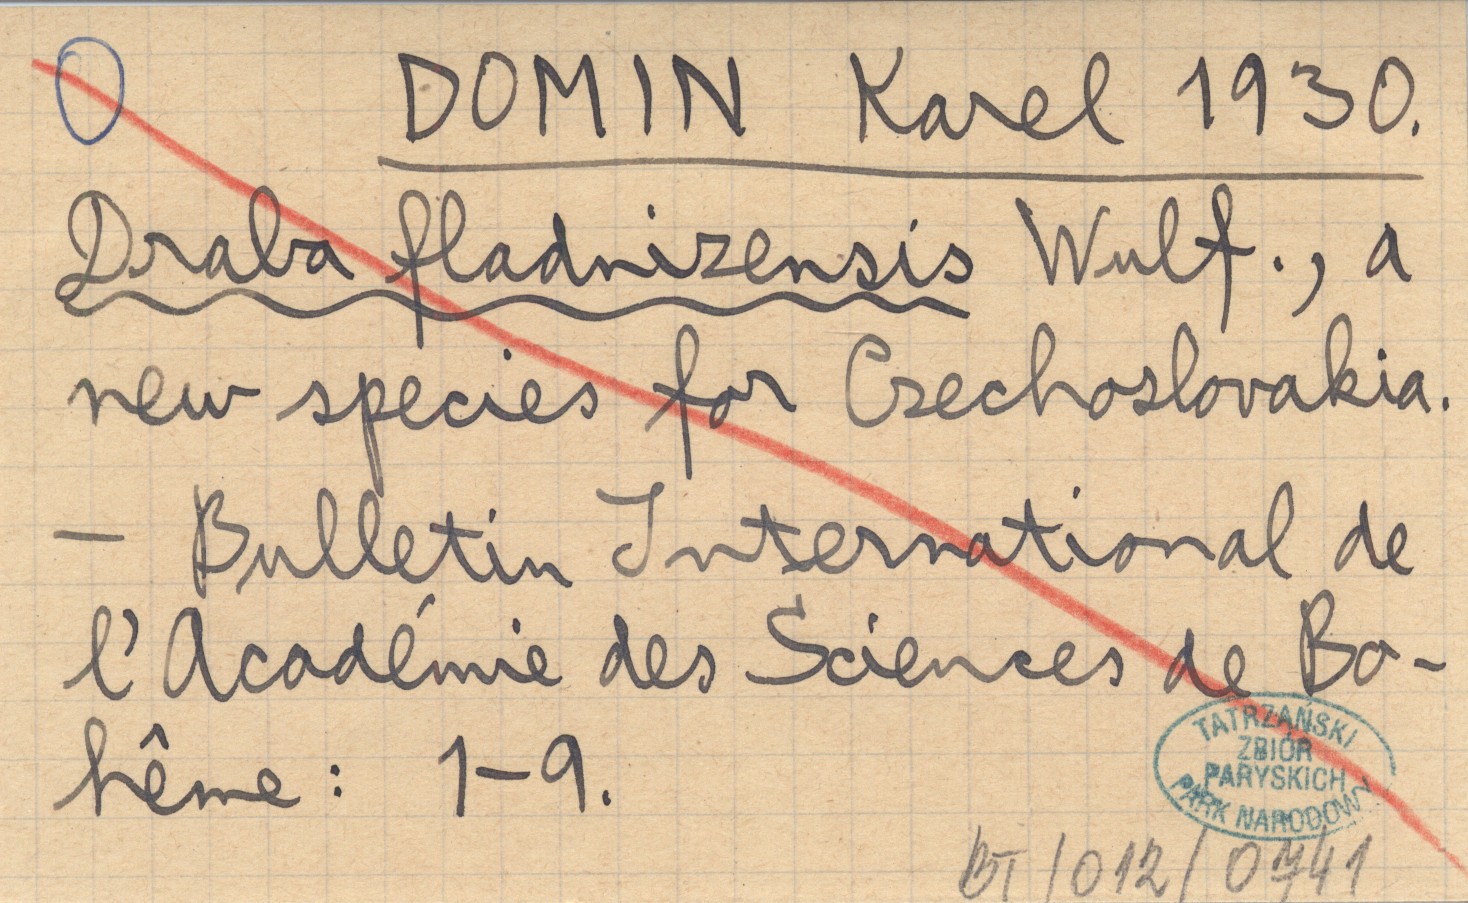 DOMIN Karel 1930.
Draba fladnizensis Wulf., a
new species for Czechoslovakia.
— Bulletin International de
l'Académie des Sciences de Bo-
hême: 1-9.
TATRZAŃSKI
ZBIÓR
PARYSKICH
PARK NARODOWY
BT/012/0741